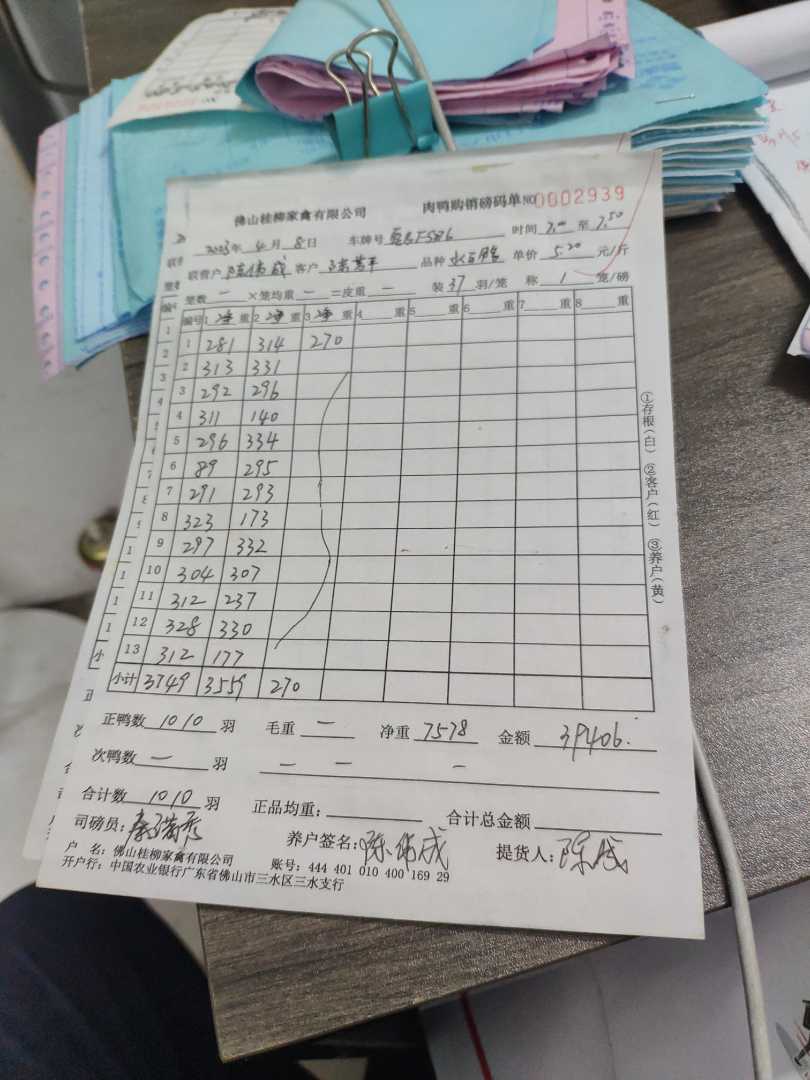 佛山桂柳家禽有限公司 肉鸭购销磅码单 NO 0002939
2023年 4月 8日 车牌号 F5B6 时间 7.00 至 7.50
联营户 陈伟成 客户 品种 单价 5.20 元/斤
笼数 — ×笼均重 — =皮重 — 装 37 羽/笼 称 1 笼/磅
编号 1 净 重 2 净 重 3 净 重 4 重 5 重 6 重 7 重 8 重
1 281 314 270
2 313 331
3 292 296
4 311 140
5 296 334
6 89 295
7 291 293
8 323 173
9 297 332
10 304 307
11 312 237
12 328 330
13 312 177
小计 3749 3559 270
①存根(白) ②客户(红) ③养户(黄)
正鸭数 1010 羽 毛重 — 净重 7578 金额 39406.
次鸭数 — 羽 — — —
合计数 1010 羽 正品均重: 合计总金额
司磅员: 养户签名: 陈伟成 提货人: 陈
户 名: 佛山桂柳家禽有限公司 账号: 444 401 010 400 169 29
开户行: 中国农业银行广东省佛山市三水区三水支行